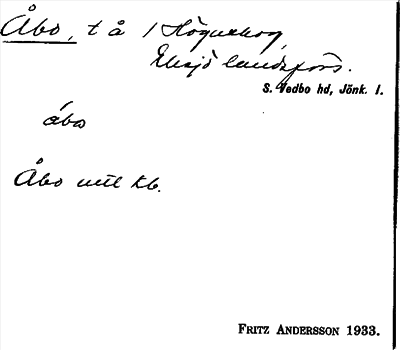 Åbo, t å / Högneskog,
Eksjö landsförs.
S. Vedbo hd, Jönk. l.
åbω
Åbo utl kb.
FRITZ ANDERSSON 1933.